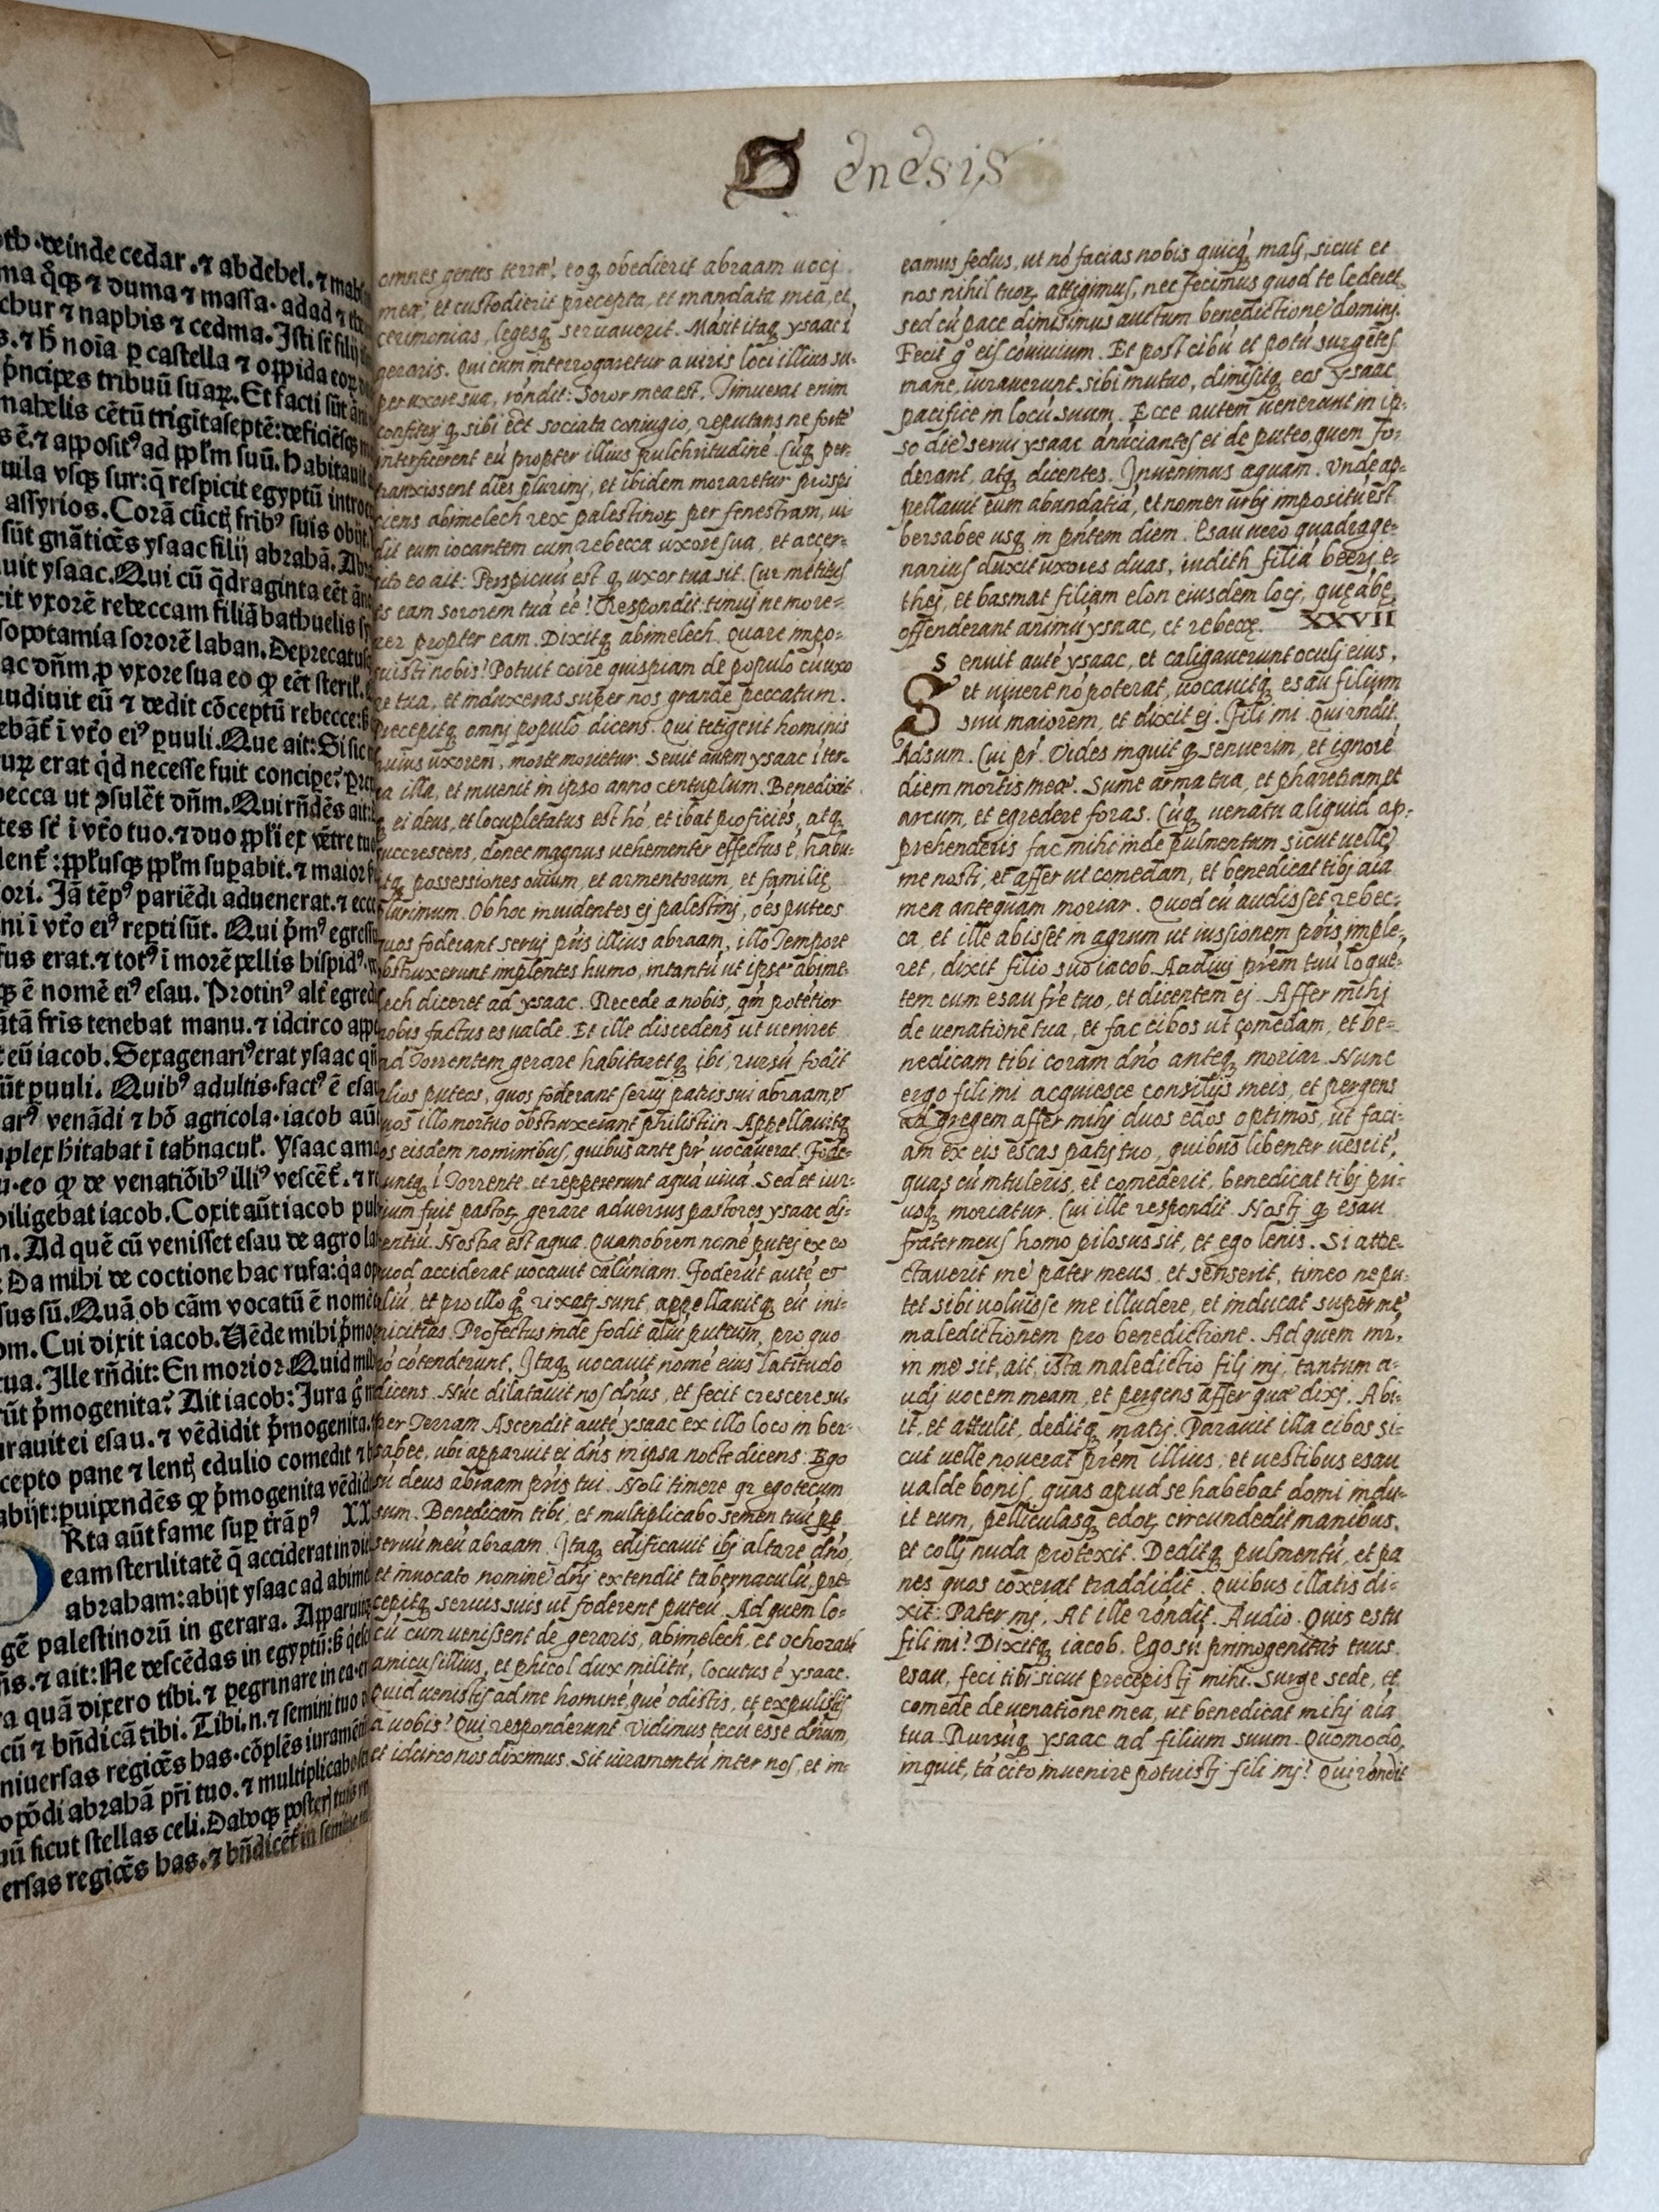 oth · deinde cedar . ⁊ abdebel. ⁊
ma q̊qꝫ ⁊ duma ⁊ massa · adad ⁊
thur ⁊ naphis ⁊ cedma. Isti sūt filij
s. ⁊ h̄ noīa ꝑ castella ⁊ oppida eoꝝ
pncipes tribuū suaꝝ. Et facti sūt
mahelis cētū trigītaseptē: deficiēsqꝫ
s ē. ⁊ apposit⁹ ad ppl̄m suū. Habitauit
uila vsqꝫ sur: q̄ respicit egyptū
assyrios. Corā cūctꝭ frib⁹ suis obijt.
sūt gnātiōes ysaac filij abrahā.
uit ysaac. Qui cū q̄draginta eēt
xit vxorē rebeccam filiā bathuelis
sopotamia sororē laban. Deprecatus
ac dn̄m ꝓ vxore sua eo ꝙ eēt steril.
udiuit eū ⁊ dedit cōceptū rebecce:
ebāt ī vt̄o ei⁹ puuli. Que ait: Si sic
uꝝ erat qd̄ necesse fuit concipe?
becca ut ↄsulēt dn̄m. Qui rn̄dēs ait:
tes st̄ ī vt̄o tuo. ⁊ duo ppl̄i ex vētre
lent̄ : ppl̄usqꝫ ppl̄m supabit. ⁊ maior
ori. Jā tēp⁹ pariēdi aduenerat. ⁊
ni ī vt̄o ei⁹ repti sūt. Qui pm⁹
fus erat. ⁊ tot⁹ ī morē pellis hispid⁹.
qꝫ ē nomē ei⁹ esau. Protin⁹ alt̄
ātā fris tenebat manu. ⁊ idcirco
eū iacob. Sexagenari⁹ erat ysaac
ūt puuli. Quib⁹ adultis · fact⁹ ē
ar⁹ venādi ⁊ hō agricola · iacob aūt
plex hitabat ī tab̄nacul. Ysaac
u · eo ꝙ de venatiōib⁹ illi⁹ vescēt̄. ⁊
diligebat iacob. Coxit aūt iacob
n. Ad quē cū venisset esau de agro
Da mihi de coctione hac rufa: q̄a
sus sū. Quā ob cām vocatū ē
om. Cui dixit iacob. Uēde mihi
ua. Ille rn̄dit: En morior. Quid
rūt pmogenita? Ait iacob: Jura
urauit ei esau. ⁊ vēdidit pmogenita.
cepto pane ⁊ lentꝭ edulio comedit ⁊
abijt: puipendēs ꝙ pmogenita
Rta aūt fame sup trā p⁹ XX
eam sterilitatē q̄ acciderat in
abraham: abijt ysaac ad
gē palestinorū in gerara. Apparuitqꝫ
n̄s. ⁊ ait: Ne descēdas in egyptū:
ra quā dixero tibi. ⁊ pegrinare in ea ·
cū ⁊ bn̄dicā tibi. Tibi. n. ⁊ semini tuo
niuersas regiōes has · cōplēs
o spōdi abrahā pr̄i tuo. ⁊ multiplicabo
uū sicut stellas celi. Daboqꝫ
ersas regiōes has. ⁊ bn̄dicēt in
Genesis
omnes gentes terræ, eo q̨ obedierit abraam uocj
meæ, et custodierit precepta, et mandata mea, et
cerimonias, legesq̨ seruauerit. Māsit itaq̨ ysaac ī
geraris. Qui cum interrogaretur a uiris loci illius su-
per uxore sua, rōndit: Soror mea est. Timuerat enim
confiteri q̨ sibi eēt sociata coniugio, reputans ne forte
interficerent eū propter illius pulchritudinē. Cūq̨ per-
tranxissent dies plurimj, et ibidem moraretur prospi
ciens abimelech rex palestinoꝝ per fenestram, ui-
dit eum iocantem cum rebecca uxore sua, et accer-
sito eo ait: Perspicuū est q̨ uxor tua sit. Cur mētitus
es eam sororem tuā eē? Respondit: timuj ne more-
rer propter eam. Dixitq̨ abimelech. Quare impo-
suisti nobis? Potuit coire quispiam de populo cū uxo
re tua, et induxeras super nos grande peccatum.
Precepitq̨ omnj populo dicens. Qui tetigerit hominis
huius uxorem, morte morietur. Seuit autem ysaac ī ter-
ra illa, et inuenit in ipso anno centuplum. Benedixit
q̨ ei deus, et locupletatus est hō, et ibat proficiēs, atq̨
succrescens, donec magnus uehementer effectus ē, habu-
itq̨ possessiones ouium, et armentorum, et familię
plurimum. Ob hoc inuidentes ej palestinj, oēs puteos
quos foderant seruj pr̄is illius abraam, illo Tempore
obstruxerunt implentes humo, intantū ut ipse abime-
lech diceret ad ysaac. Recede a nobis, qm̄ potētior
nobis factus es ualde. Et ille discedens ut ueniret
ad Torrentem gerare habitaretq̨ ibi, rursū fodit
alios puteos, quos foderant seruj patris sui abraam, &
quos illo mortuo obstruxerant philistiin. Appellauitq̨
os eisdem nominibus, quibus ante pr̄ uocauerat. Fode-
runtq̨ ī Torrente et reppererunt aquā uiuā. Sed et iur-
gium fuit pastoꝝ gerare aduersus pastores ysaac di-
centiū. Nostra est aqua. Quamobrem nomē putej ex eo
quod acciderat uocauit calūniam. Foderūt autē &
aliū, et pro illo q̊ rixatj sunt, appellauitq̨ eū ini-
micitias. Profectus inde fodit aliū puteum, pro quo
nō cōtenderunt. Itaq̨ uocauit nomē eius latitudo
dicens. Nūc dilatauit nos dn̄s, et fecit crescere su-
per Terram. Ascendit autē ysaac ex illo loco in ber-
sabee, ubi apparuit ei dn̄s in ipsa nocte dicens: Ego
sū deus abraam pr̄is tui. Noli timere qr ego tecum
sum. Benedicam tibi, et multiplicabo semen tuū ꝓp̄
seruū meū abraam. Itaq̨ edificauit ibj altare dn̄o,
et inuocato nomine dn̄j extendit tabernaculū, pre-
cepitq̨ seruis suis ut foderent puteū. Ad quem lo-
cū cum uenissent de geraris, abimelech, et ochozath
amicus illius, et phicol dux militū, locutus ē ysaac.
Quid uenistis ad me hominē, quē odistis, et expulistis
a uobis? Qui responderunt Vidimus tecū esse dn̄um,
et idcirco nos diximus. Sit iuramentū inter nos, et in-
eamus fedus, ut nō facias nobis quicq̨ malj, sicut et
nos nihil tuoꝝ attigimus, nec fecimus quod te lederet
sed cū pace dimisimus auctum benedictione dominj.
Fecit g̊ eis cōuiuium. Et post cibū et potū surgētes
mane, iurauerunt sibi mutuo, dimisitq̨ eos ysaac
pacifice in locū suum. Ecce autem uenerunt in ip-
so die serui ysaac ānūciantes ei de puteo, quem fo-
derant, atq̨ dicentes. Inuenimus aquam. Vnde ap-
pellauit eum abundātiā, et nomen urbj impositū est
bersabee usq̨ in pn̄tem diem. Esau uero quadrage-
narius duxit uxores duas, iudith filiā beerj e-
thej, et basmat filiam elon eiusdem locj, quę ābę
offenderant animū ysaac, et rebeccę. XXVII
S enuit autē ysaac, et caligauerunt oculj eius,
et uidere nō poterat, uocauitq̨ esau filium
suū maiorem, et dixit ej. Fili mi. Qui rn̄dit.
Adsum. Cui pr̄. Vides inquit q̨ senuerim, et ignorē
diem mortis meæ. Sume arma tua, et pharetram et
arcum, et egredere foras. Cūq̨ uenatu aliquid ap-
prehenderis fac mihi inde pulmentum sicut uelle
me nosti, et affer ut comedam, et benedicat tibj aīa
mea antequam moriar. Quod cū audisset rebec-
ca, et ille abisset in agrum ut iussionem pr̄is imple-
ret, dixit filio suo iacob. Audiuj pr̄em tuū loquē-
tem cum esau fr̄e tuo, et dicentem ej. Affer mihj
de uenatione tua, et fac cibos ut comedam, et be-
nedicam tibi coram dn̄o anteq̨ moriar. Nunc
ergo fili mi acquiesce consilijs meis, et pergens
ad gregem affer mihj duos edos optimos, ut faci-
am ex eis escas patrj tuo, quibus libenter uescit,
quas cū intuleris, et comederit, benedicat tibj pri-
usq̨ moreatur. Cui ille respondit. Nostj q̨ esau
frater meus homo pilosus sit, et ego lenis. Si atte-
ctauerit me pater meus et senserit, timeo ne pu-
tet sibi uoluisse me illudere, et inducat super me
maledictionem pro benedictione. Ad quem mr̄.
in me sit, ait, ista maledictio filj mj, tantum a-
udj uocem meam, et pergens affer quæ dixj. Abi-
it, et attulit, deditq̨ matrj. Parauit illa cibos si-
cut uelle nouerat pr̄em illius, et uestibus esau
ualde bonis, quas apud se habebat domi indu-
it eum, pelliculasq̨ edoꝝ circundedit manibus,
et collj nuda protexit. Deditq̨ pulmentū, et pa
nes quos coxerat traddidit. Quibus illatis di-
xit: Pater mj. At ille rōndit. Audio. Quis es tu
fili mi? Dixitq̨ iacob. Ego sū primogenitus tuus
esau, feci tibi sicut precepistj mihi. Surge sede, et
comede de uenatione mea, ut benedicat mihj aīa
tua. Rursūq̨ ysaac ad filium suum. Quomodo,
inquit, tā cito inuenire potuistj fili mj? Qui rōndit